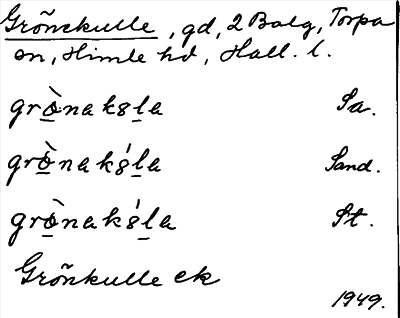 Grönekulle, gd, 2 Balg, Torpa
sn, Himle hd, Hall. l.
grò̱naks̱la Sa.
grò̱nakśḻa Sand.
grò̱nakśḻa St.
Grönkulle ek
1949.